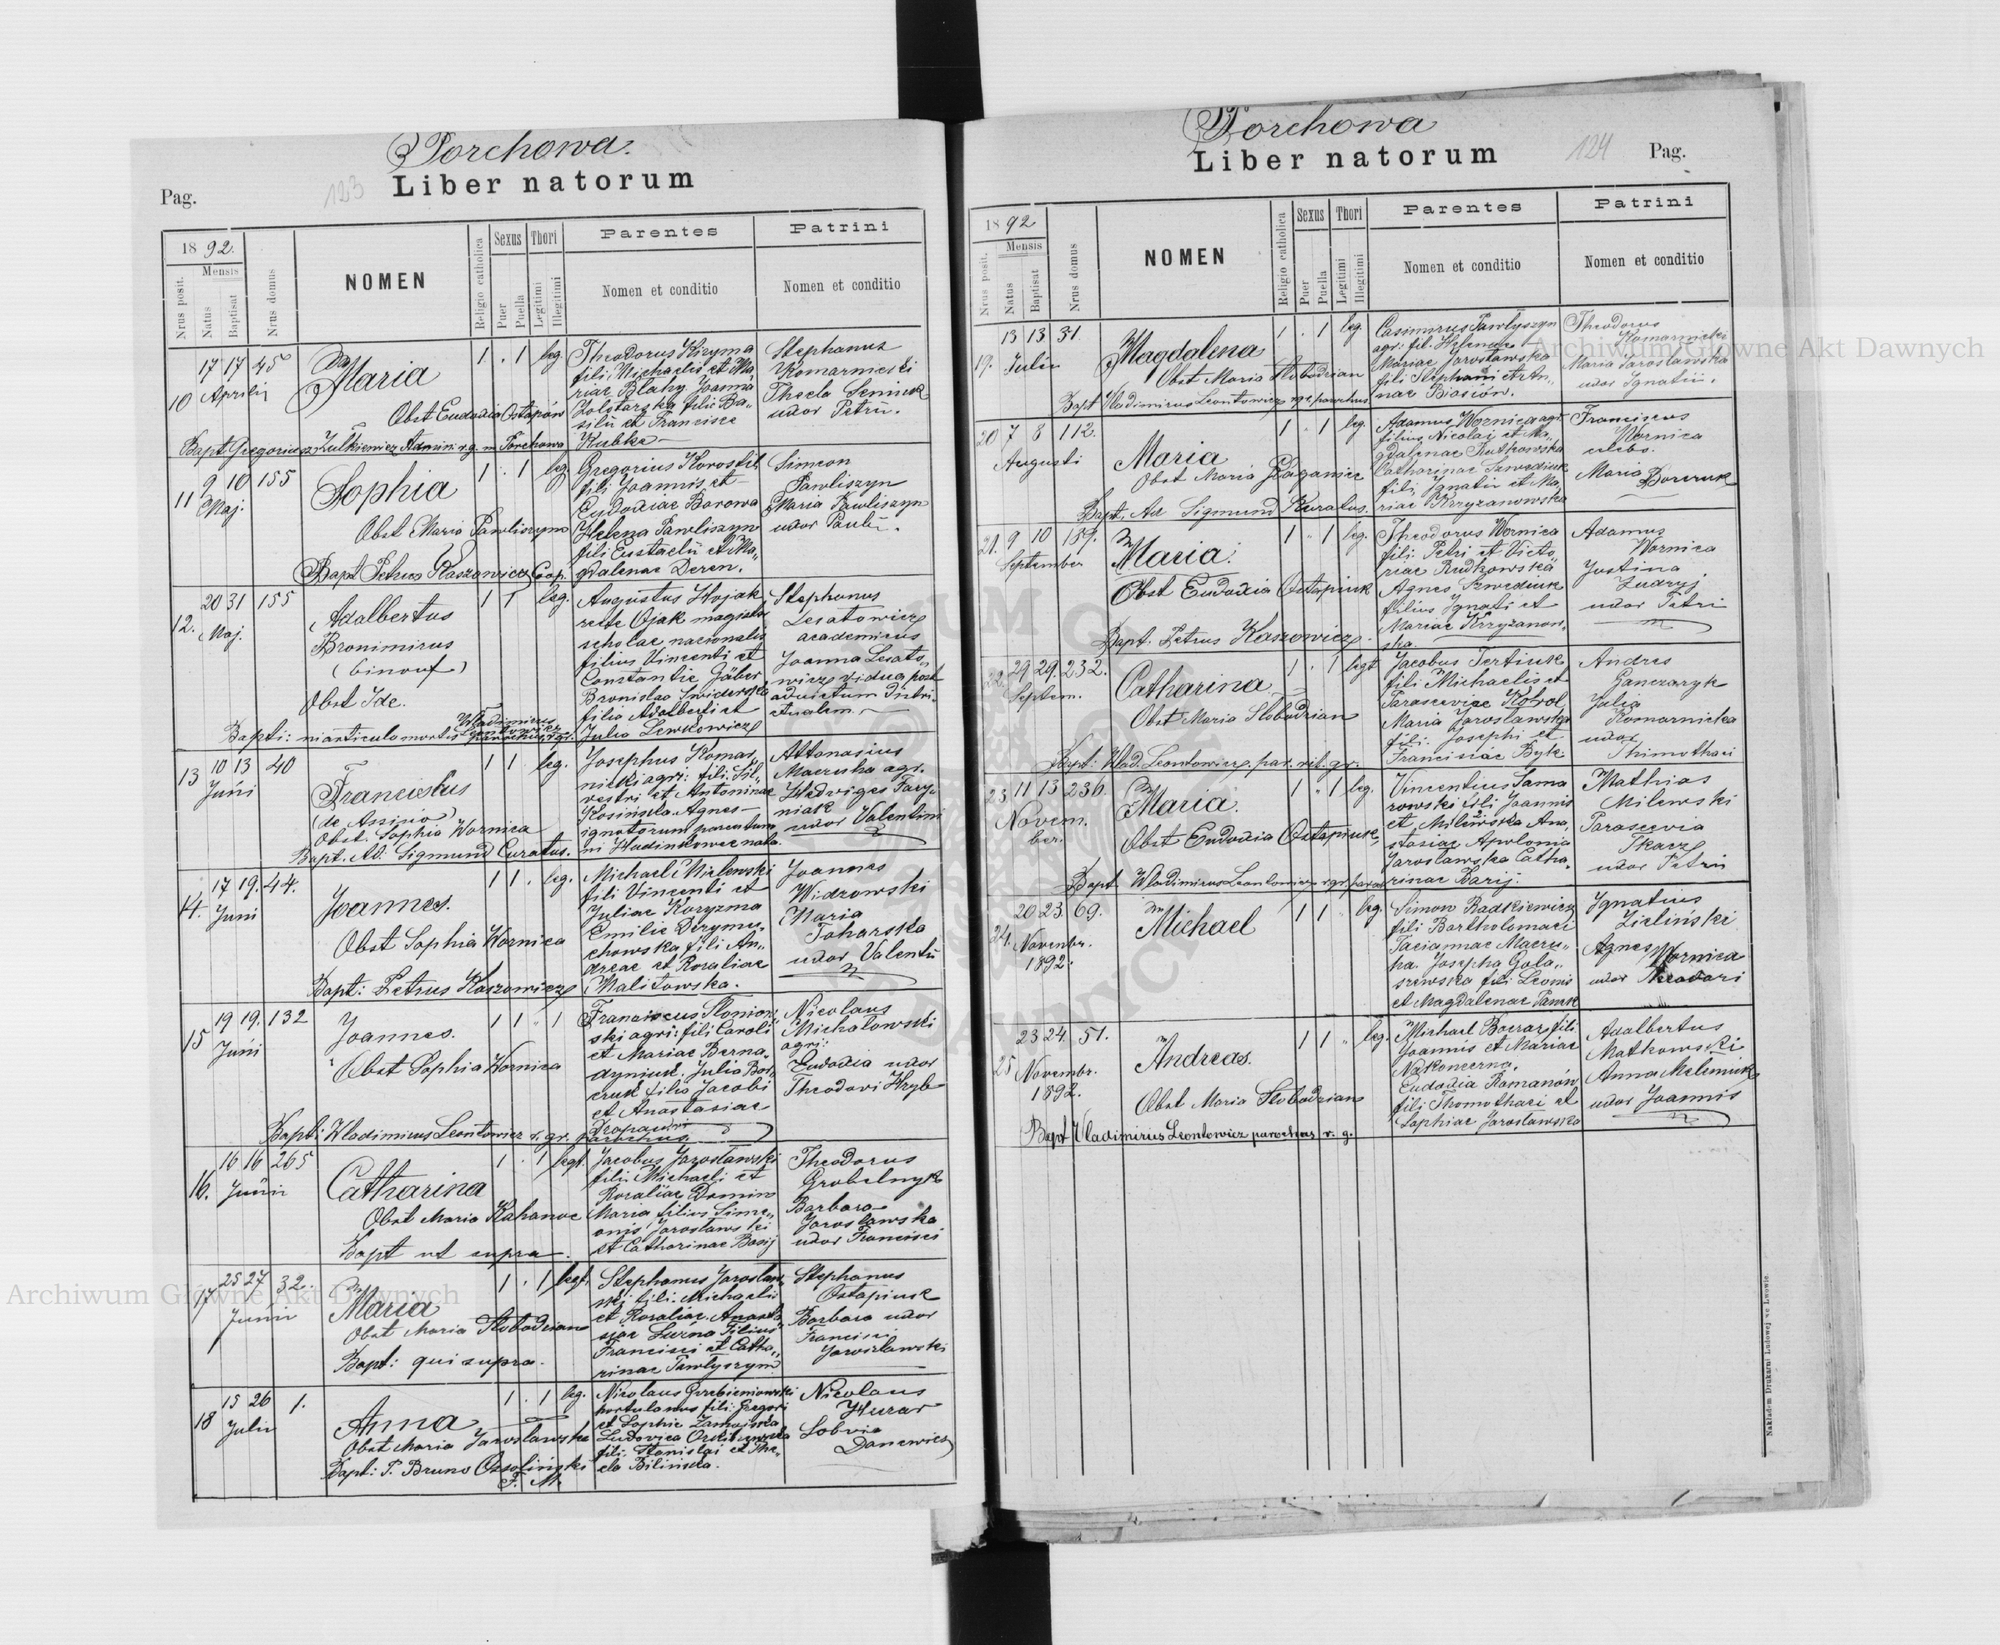 Porchowa.
Pag.
123
Liber natorum
18 92.
Nrus posit.
Mensis
Natus
Baptisat
Nrus domus
NOMEN
Religio catholica
Sexus
Puer
Puella
Thori
Legitimi
Illegitimi
Parentes
Nomen et conditio
Patrini
Nomen et conditio
10
17 17 45
Aprilij
Maria
Obst Eudoxia Ostapów
Bapt. Gregorius Julkiewicz Admin. r.g. in Porchowa
1 . 1 leg.
Theodorus Kizyma
fili Michaelis et Ma
riae Blahy Joanna
Zolotarska filii Ba-
silii et Francisce
Kubka
Stephanus
Komarnicki
Thecla Seniuk
uxor Petri.
11
9 10 155
Maj.
Sophia
Obst Maria Pawliszyn
Bapt Petrus Kaszowicz Coop.
1 . 1 leg.
Gregorius Horostil
fili Joannis et
Eudoxiae Borowa
Helena Pawliszyn
fili Eustachi et Ma„
gdalenae Deren.
Simeon
Pawliszyn
Maria Pawliszyn
uxor Pauli.
12.
20 31 155
Maj.
Adalbertus
Bronimirus
(binonf)
Obst Ide.
Bapti: in articulo mortis Wladimirus Leontowicz parochus r.gr.
1 1 leg.
Augustus Hojak
recte Ojak magister
scholae nacionalis
filius Vincenti et
Constantie Jäber
Bronislao Swiderska
filia Adalberti et
Julia Lewkowicz
Stephanus
Lesatowicz
academicus
Joanna Lesato„
wicz vidua post
aduictum distri-
ctualem
13
10 13 40
Juni
Franciscus
(de Assisio)
Obst. Sophia Wornica
Bapt. Ad. Sigmund Curatus.
1 1 leg.
Josephus Komar
nicki agri: fili: Sil„
vestri et Antoninae
Kosińska Agnes
ignotorum parentum
in Hadinkowce nata.
Attanasius
Macruha agr.
Hedviges Tary-
niak
uxor Valentini
14.
17 19. 44.
Juni
Joannes.
Obst Sophia Wornica
Bapt: Petrus Kaszowicz
1 1 . leg.
Michael Mielewski
fili Vincenti et
Juliae Koryzma
Emilie Derymu-
chowska fili An„
dreae et Rosaliae
Malitowska.
Joannes
Widrowski
Maria
Toharska
uxor Valentii
15
19 19. 132
Juni
Joannes.
Obst Sophia Wornica
Bapt: Wladimirus Leontowicz r. gr. parochus
1 1 „ 1
Franciscus Sloniow„
ski agri: fili Caroli
et Mariae Berna„
dyniuk. Julia Bor
cruk filia Jacobi
et Anastasiae
Nicolaus
Michalowski
agri:
Eudoxia uxor
Theodori Hryb
16.
16 16 265
Junii
Catharina
Obst Maria Kahanec
Bapt ut supra.
1 . 1 legt.
Jacobus Jaroslawski
fili. Michaeli et
Rosaliae Domin
Maria filius Sime„
onis Jaroslawski
et Catharinae Basij
Theodorus
Grobelnyk
Barbara
Jaroslawska
uxor Francisci
17
25 27 32.
Junii
Maria
Obst Maria Slobodzian
Bapt: qui supra.
1 . 1 legt.
Stephanus Jaroslaw„
ski fili. Michaelis
et Rosaliae. Anasta
siae Furna filius
Francisci et Catha„
rinae Pawlyszyn
Stephanus
Ostapiuk
Barbara uxor
Francisci
Jaroslawski
18
15 26 1.
Julii
Anna
Obst Maria Jaroslawska
Bapt: P. Bruno Ossoliński
F. M.
1 . 1 leg.
Nicolaus Grzebieniowski
hortulanus fili: Gregori
et Sophie Zamojska
Ludovica
fili: Stanislai et The„
cla Bilińska.
Nicolaus
Huzar
Lobvia
Danewicz
Porchowa
Liber natorum
124
Pag.
18 92
Nrus posit.
Mensis
Natus
Baptisat
Nrus domus
NOMEN
Religio catholica
Sexus
Puer
Puella
Thori
Legitimi
Illegitimi
Parentes
Nomen et conditio
Patrini
Nomen et conditio
19.
13 13 31.
Julii
Magdalena
Obst Maria Slobodzian
Bapt Vladimirus Leontowicz r.gr. parochus
1 . 1 leg.
Casimirus Pawlyszyn
agr. fil. Hilendre
Mariae Jaroslawska
fili Stephani et An„
nae Basiów.
Theodorus
Komarnicki
Maria Jaroslawska
uxor Ignatii.
20
7 8 112.
Augusti
Maria
Obst Maria Gaganiec
Bapt. Ad Sigmund Kuratus.
1 . 1 leg.
Adamus Wornica agr.
filius Nicolai et Ma„
gdalenae Rutkowska
Catharinae Szwediuk
fili, Ignatii et Ma,
riae Krzyżanowska
Franciscus
Wornica
celebs.
Maria Borcruk
21.
9 10 189.
September
Maria.
Obst Eudoxia Ostapiuk
Bapt. Petrus Kaszowicz
1 . 1 leg.
Theodorus Wornica
fili: Petri et Victo
riae Rudkowska
Agnes Szwediuk
filius Ignati et
Mariae Krzyżanow-
ska.
Adamus
Wornica
Justina
Zudryj
uxor Petri
22.
29 29. 232.
Septem.
Catharina
Obst Maria Slobodzian
Bapt: Wlad. Leontowicz par. rit. gr.
1 . 1 legt
Jacobus Tertiuk
fili Michaelis et
Parasceviae Korol
Maria Jaroslawska
fili: Josephi et
Francisiae Byk
Andres
Ganczaryk
Julia
Komarnicka
uxor
Thimothaei
23
11 13 236.
Novem.
ber.
Maria.
Obst Eudoxia Ostapiuk
Bapt. Wladimirus Leontowicz r.gr. paroc
1 " 1 leg.
Vincentius Sama
rowski fili Joannis
et Milewska Ana,
stasiae Apolonia
Jaroslawska Catha„
rinae Barij.
Mathias
Milewski
Parascevia
Tkacz
uxor Petri
24.
20 23. 69.
Novembr.
1892.
Michael
1 1 " leg.
Simon Radkiewicz
fili Bartholomaei
Taciannae Macru„
ha. Josepha Gola„
szewska fili Leonis
et Magdalenae Panek
Ignatius
Zieliński
Agnes Wornica
uxor Theodori
25
23 24. 51.
Novembr.
1892.
Andreas.
Obst Maria Slobodzian
Bapt Vladimirus Leontowicz parochus r. g.
1 1 " leg.
Michael Bocraz fili
Joannis et Mariae
Nakoneczna.
Eudoxia Romanów
fili Thomothaei et
Sophiae Jaroslawska
Adalbertus
Matkowski
Anna Melimiuk
uxor Joannis
Nakładem Drukarni Ludowej we Lwowie.
Archiwum Główne Akt Dawnych
Archiwum Główne Akt Dawnych